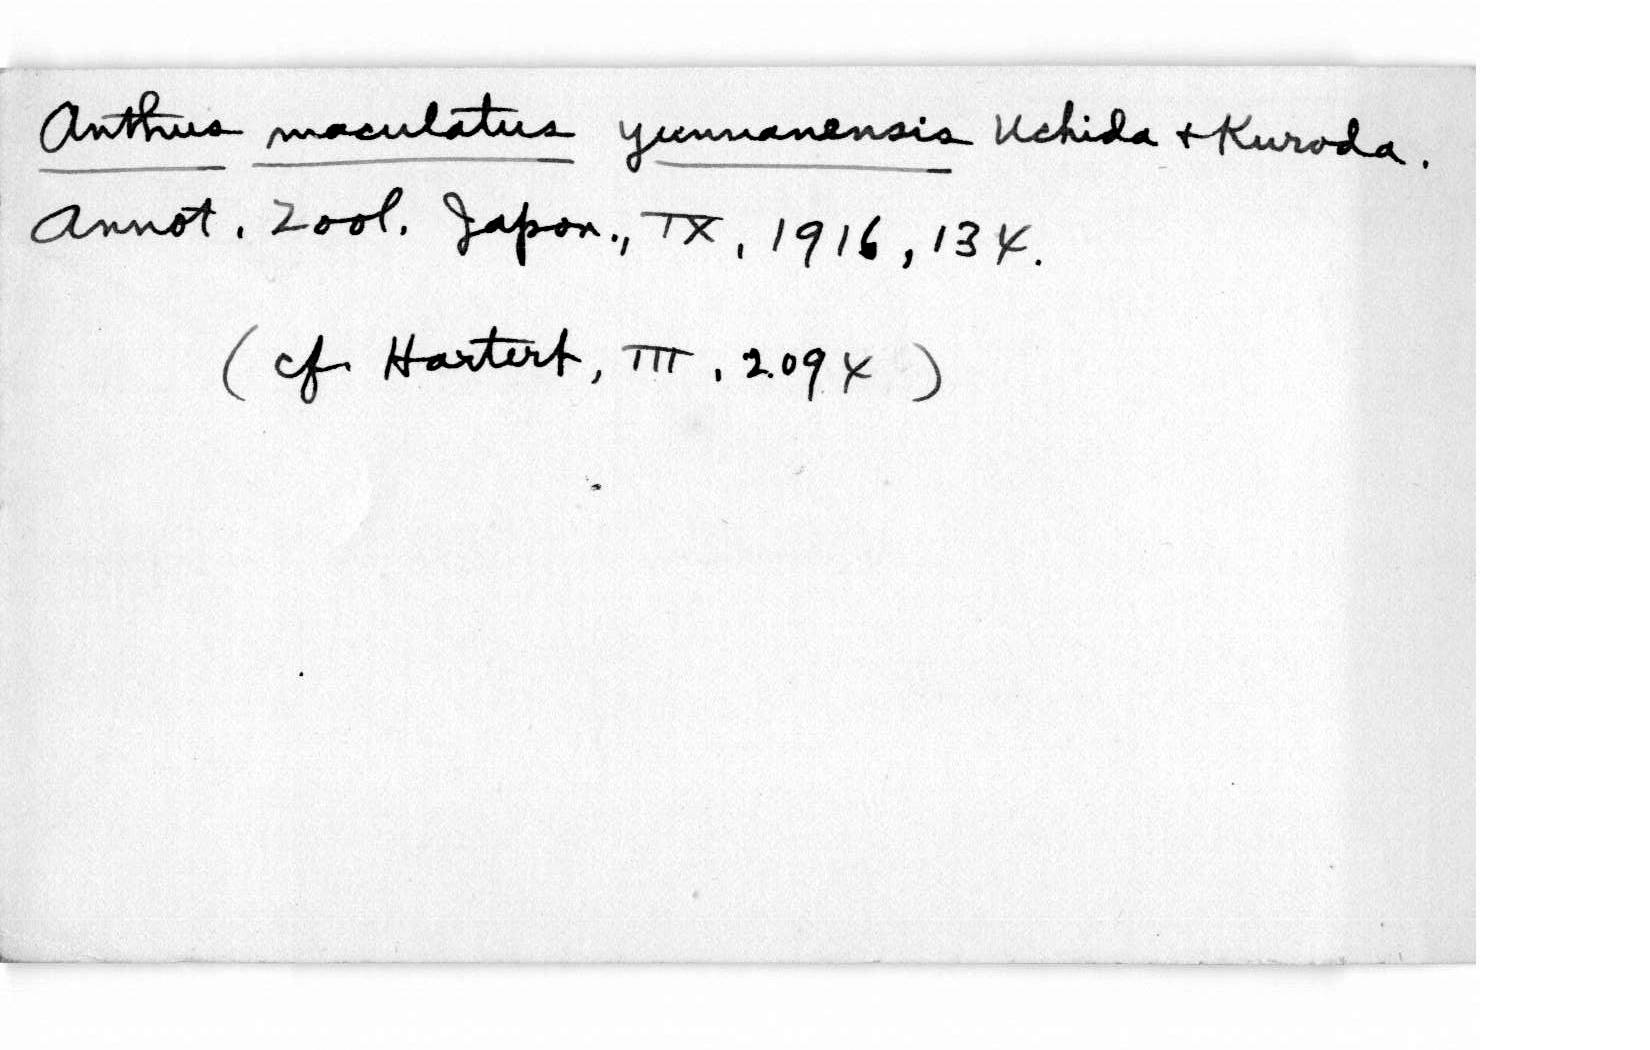 Anthus maculatus yunnanensis Uchida + Kuroda.
Annot. Zool. Japon., IX, 1916, 134.
(cf. Hartert, III, 2094)